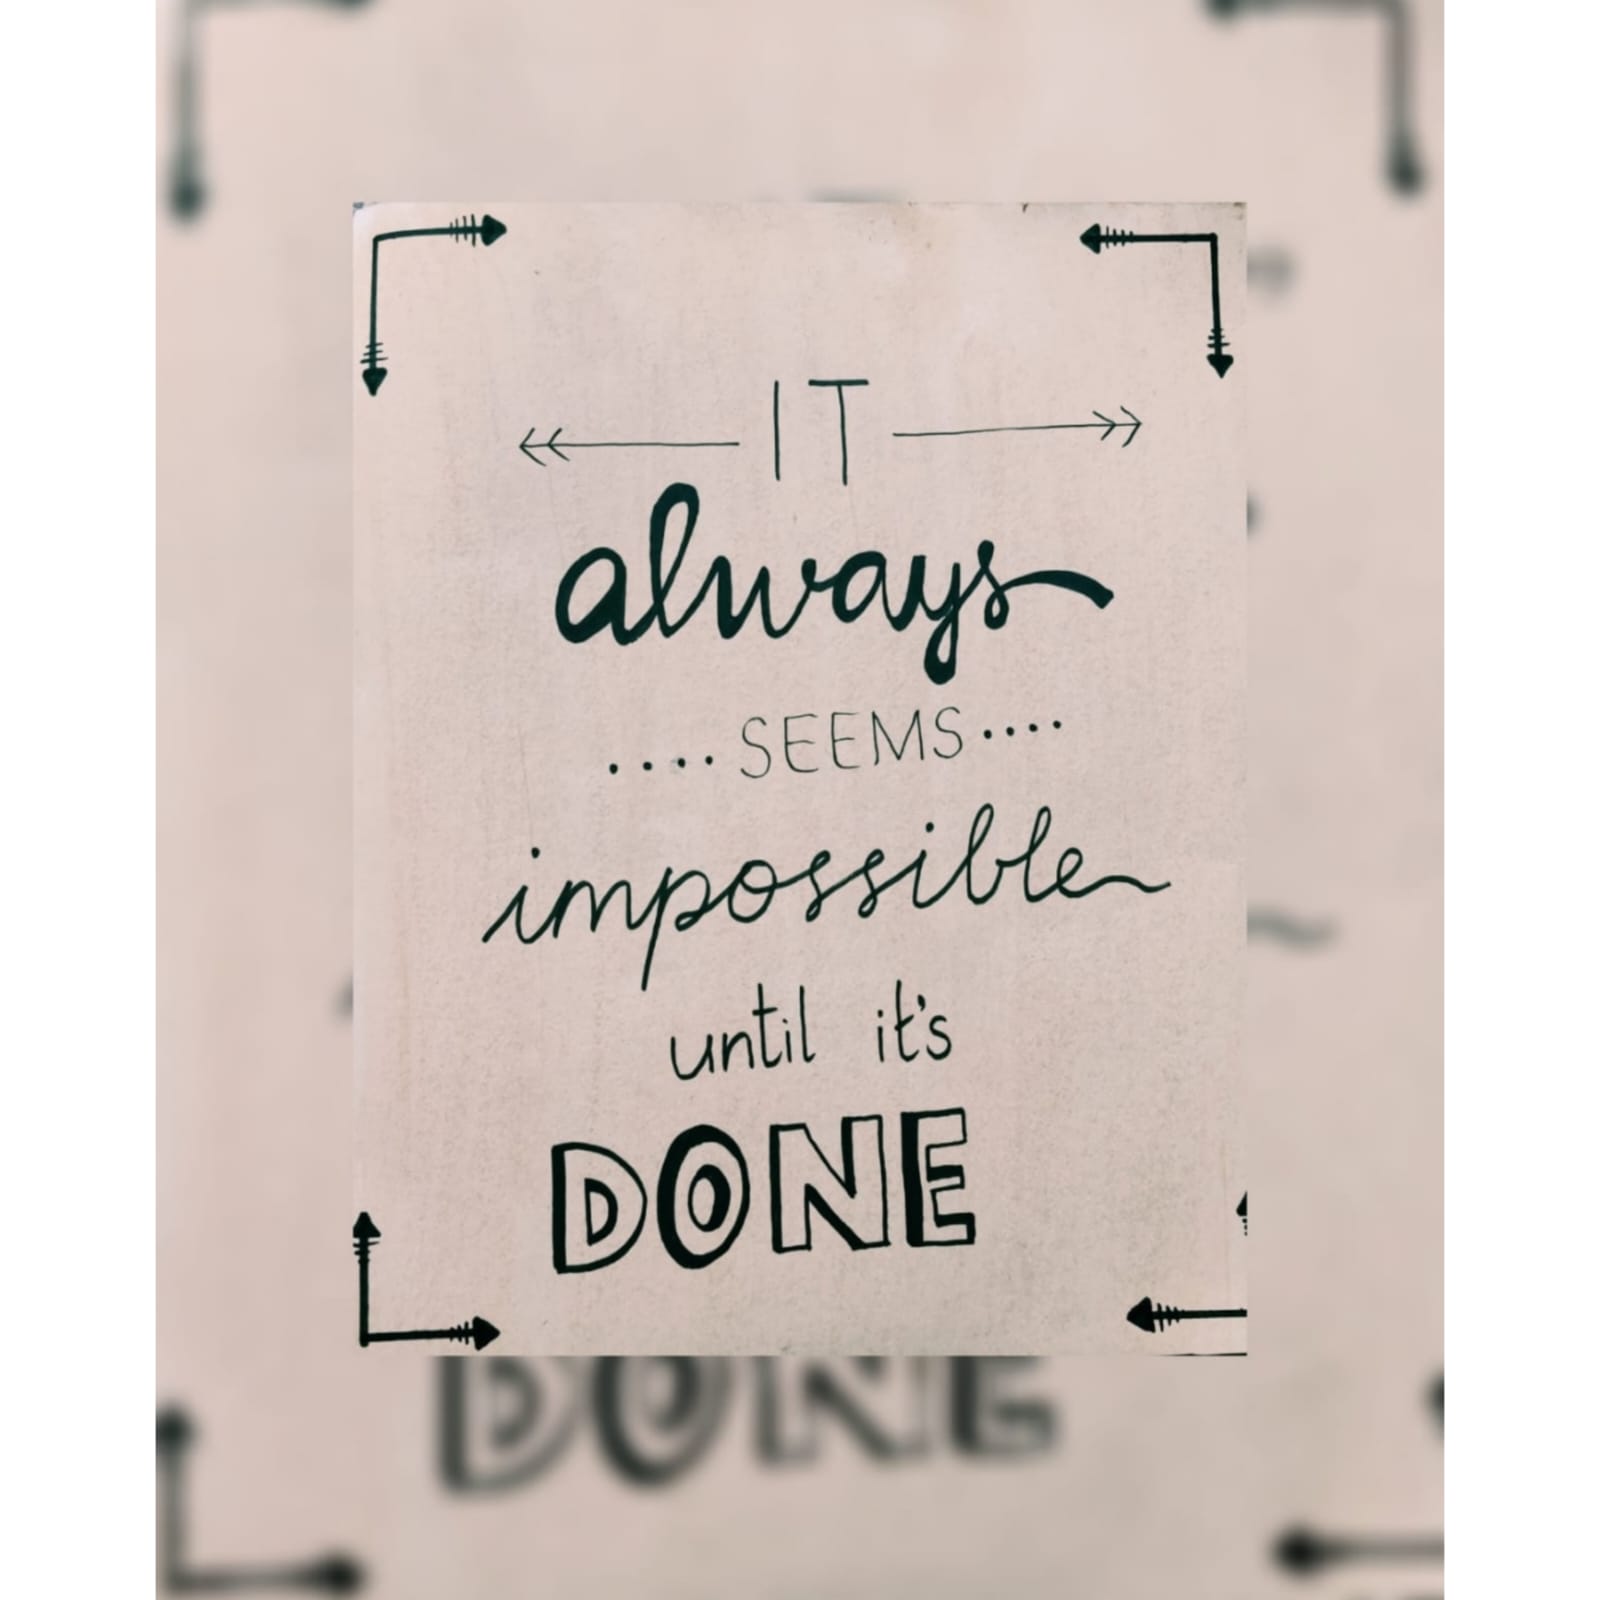 IT
always
SEEMS
impossible
until it's
DONE
DONE